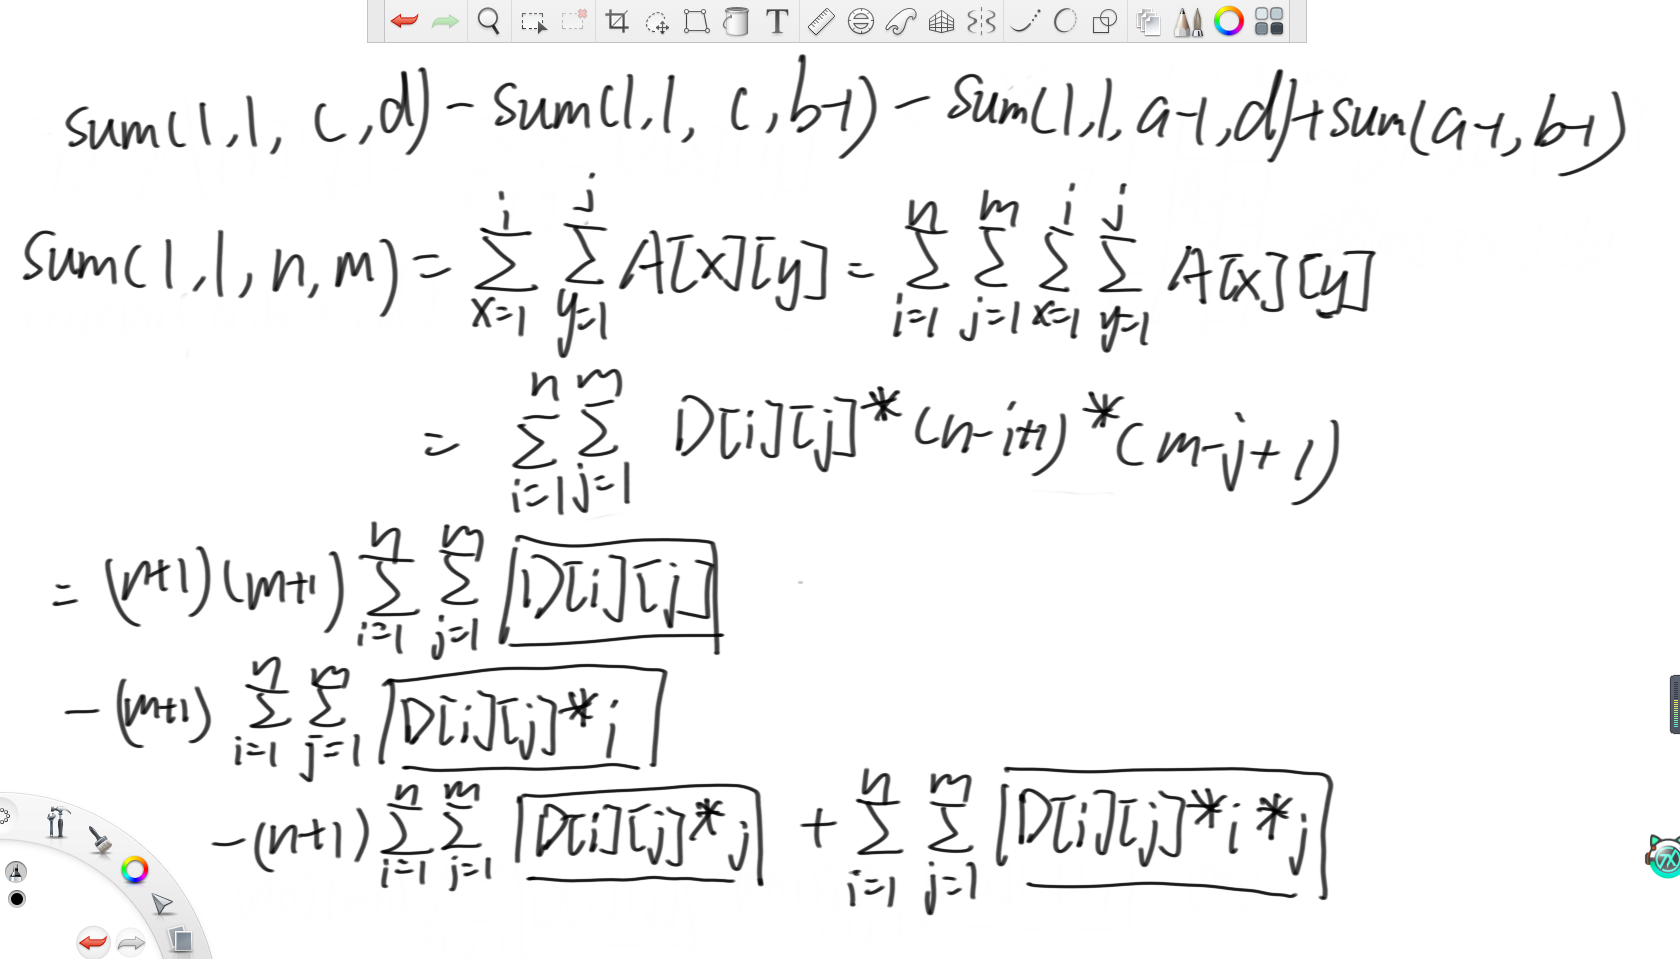 sum(1,1, c,d) - sum(1,1, c,b-1) - sum(1,1,a-1,d)+sum(a-1,b-1)
sum(1,1,n,m) = \sum_{x=1}^{i} \sum_{y=1}^{j} A[x][y] = \sum_{i=1}^{n} \sum_{j=1}^{m} \sum_{x=1}^{i} \sum_{y=1}^{j} A[x][y]
= \sum_{i=1}^{n} \sum_{j=1}^{m} D[i][j]*(n-i+1)*(m-j+1)
= (n+1)(m+1) \sum_{i=1}^{n} \sum_{j=1}^{m} D[i][j]
- (m+1) \sum_{i=1}^{n} \sum_{j=1}^{m} D[i][j]*i
- (n+1) \sum_{i=1}^{n} \sum_{j=1}^{m} D[i][j]*j + \sum_{i=1}^{n} \sum_{j=1}^{m} D[i][j]*i*j